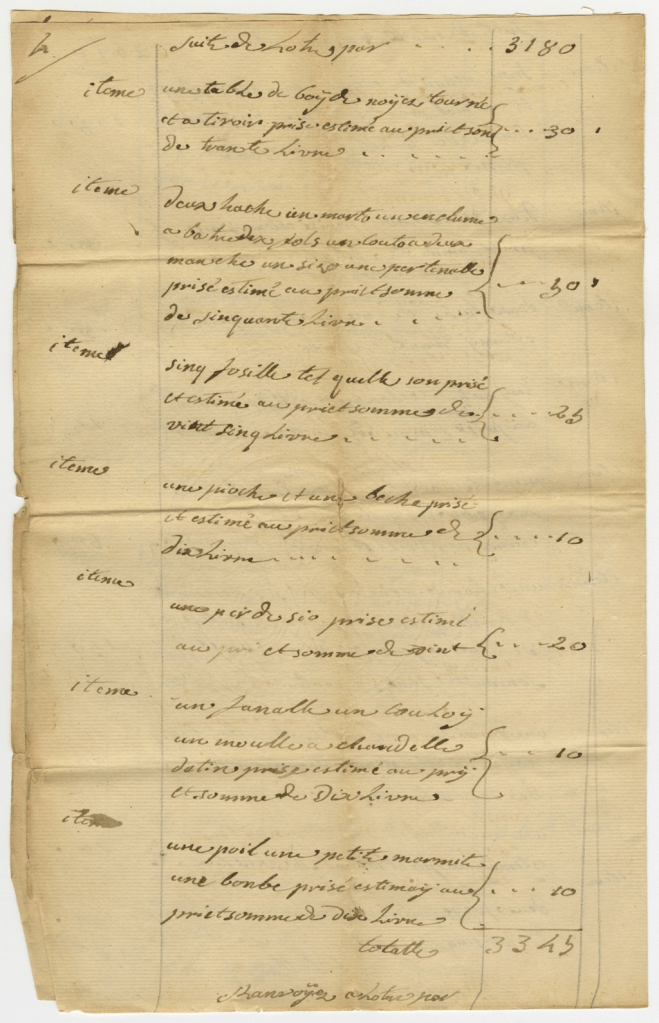 4/ suite de lotre par . . . . 3180
iteme une table de boÿ de noÿez tourné
et a tiroir prise estimé au priet son . . . 30
de trante Livre . . . .
iteme
deux hache un marto un enclume
a batre dex fols un couto a deux
manche un sizo une per tenalle
prisé estimé au priet somme . . . 50
de sinquante Livre . . .
iteme
sinq fosille tel quelle son prisé
et estimé au priet somme de . . . 25
vient sinq Livre . . . .
iteme
une pioche et une beche prisé
et estimé au priet somme de . . . 10
dix Livre . . . . .
iteme
une per de sio prise estimé
au pri et somme de vint . . . 20
iteme
un fanalle un couloÿ
un moulle a chandelle . . . 10
detin prise estimé au prÿ
et somme de Dix Livre
iteme
une poil une petite marmite
une bonbe prisé estimaÿ au . . . 10
priet somme de dix Livre
totalle 3345
ranvoÿez a lotre par